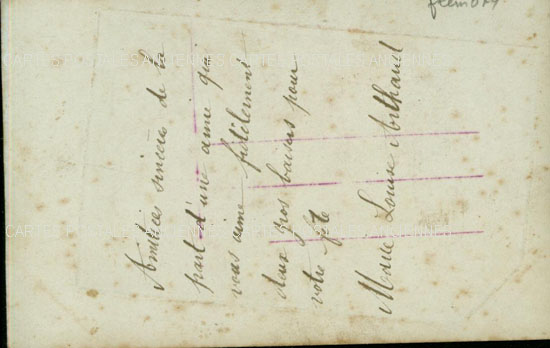 Amitiés sincères de la
part d'une amie qui
vous aime fidèlement
deux gros baisers pour
votre fête
Marie Louise Arthaud
CARTES POSTALES ANCIENNES CARTES POSTALES ANCIENNES
CARTES POSTALES ANCIENNES CARTES POSTALES ANCIENNES